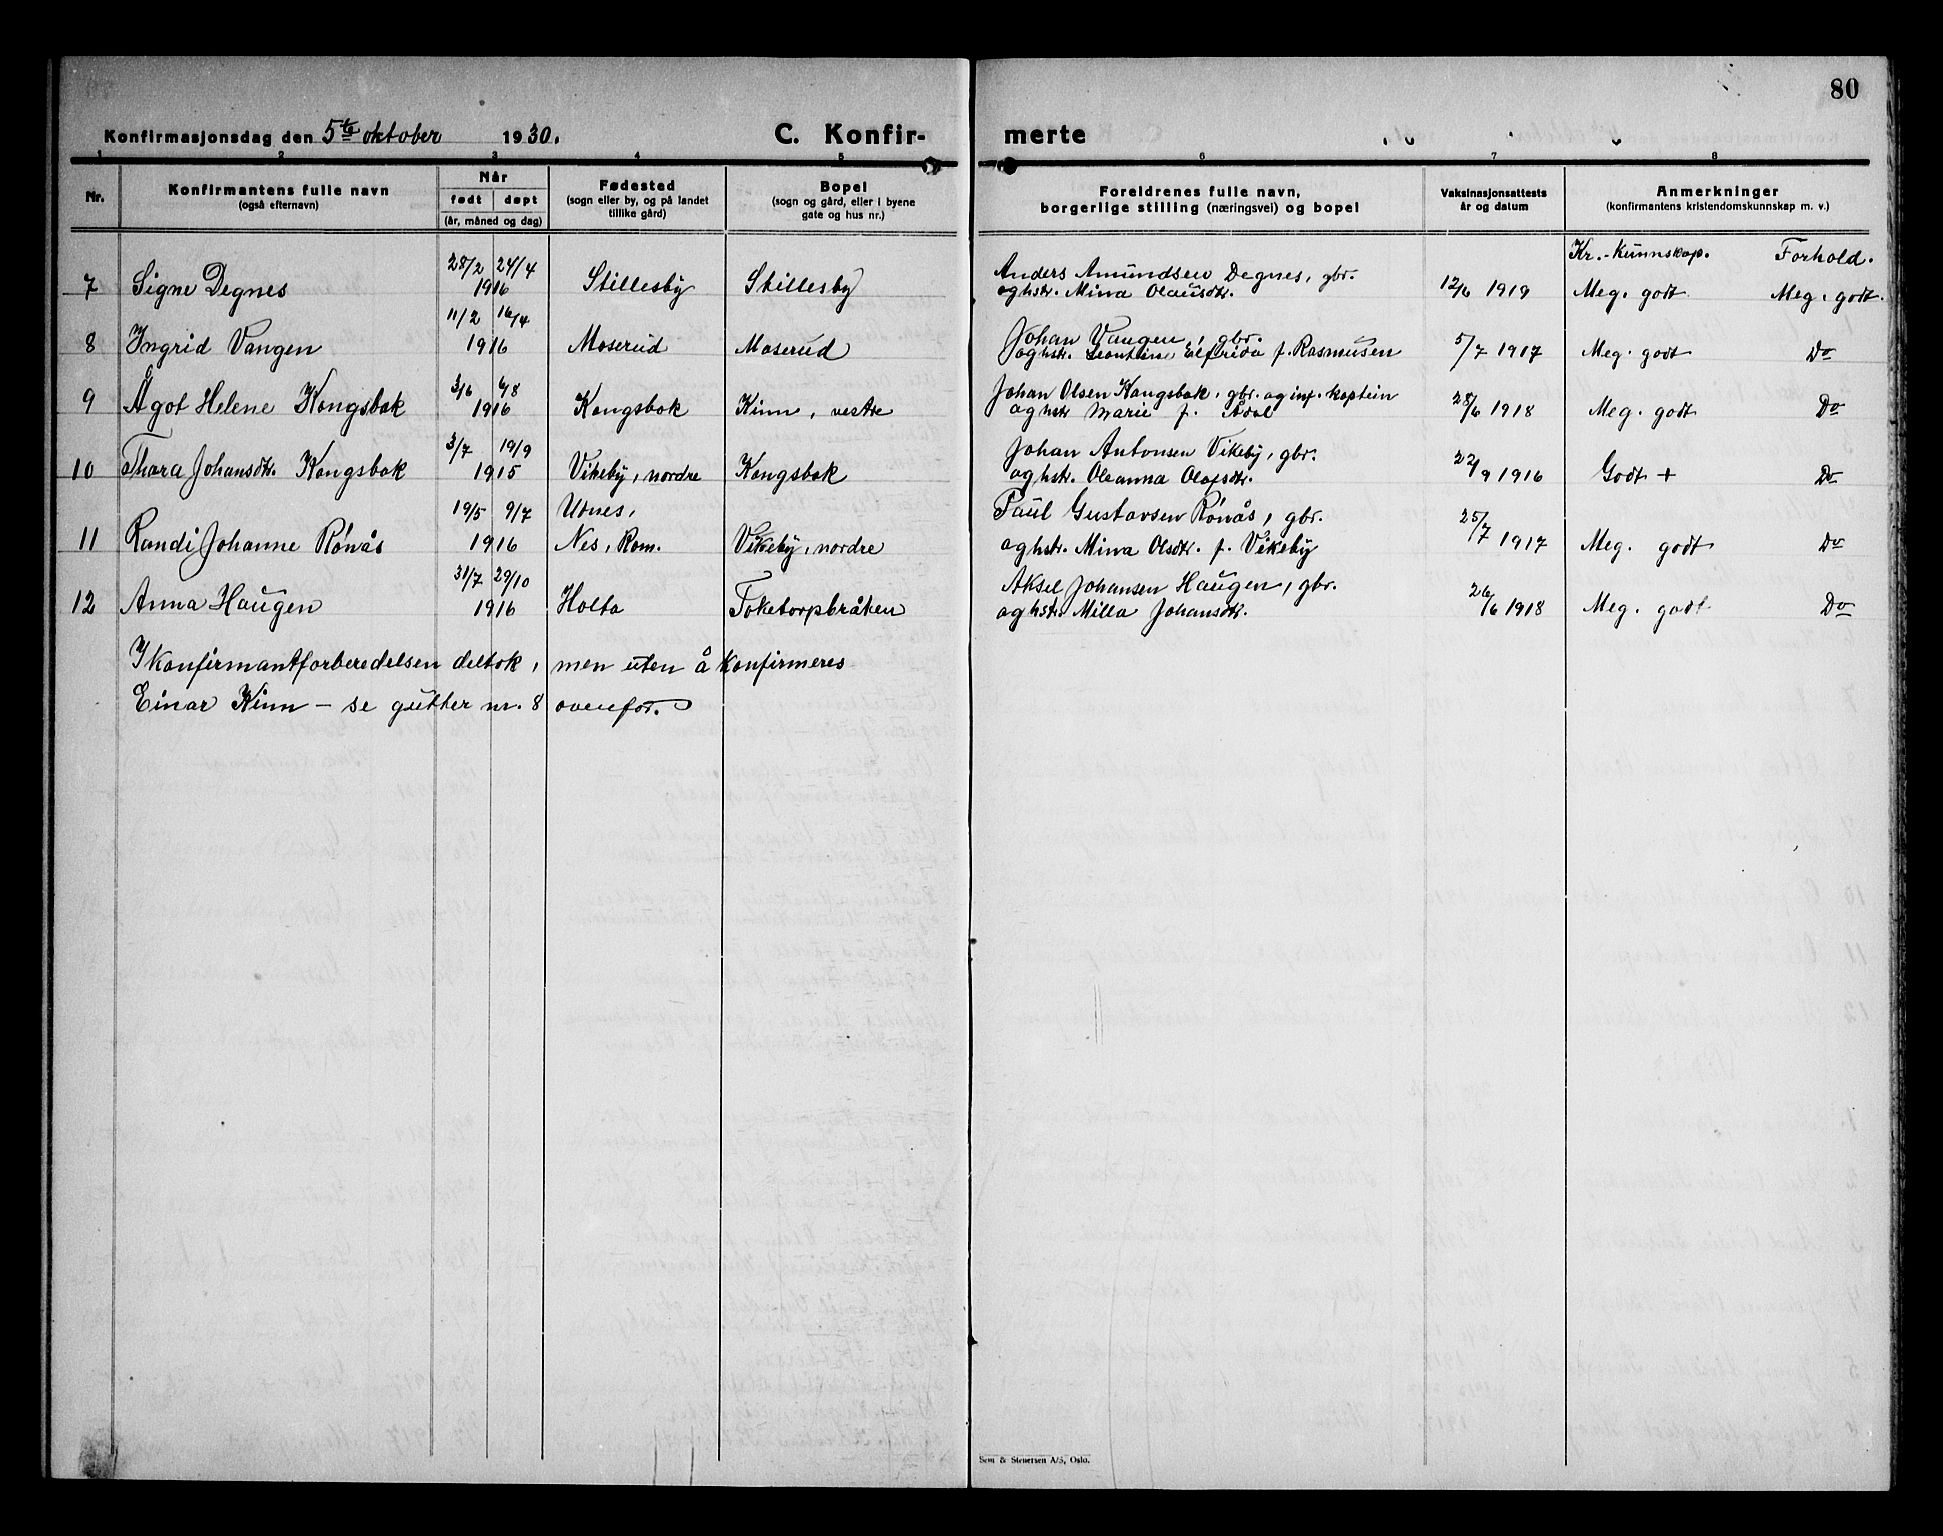 80
Konfirmasjonsdag den 5te oktober 1930. C. Konfir- merte
1 2 3 4 5 6 7 8
Nr. Konfirmantens fulle navn (også efternavn) Når født døpt (år, måned og dag) Fødested (sogn eller by, og på landet tillike gård) Bopel (sogn og gård, eller i byene gate og hus nr.) Foreldrenes fulle navn, borgerlige stilling (næringsvei) og bopel Vaksinasjonsattests år og datum Anmerkninger (konfirmantens kristendomskunnskap m. v.)
Kr.-kunnskap. Forhold.
28/2 24/4 Anders Amundsen Degnes, gbr.
7 Signe Degnes 1916 Stillesby Stillesby og hstr. Mina Olausdtr. 12/6 1919 Meg. godt Meg. godt.
11/2 16/4 Johan Vangen, gbr.
8 Ingrid Vangen 1916 Moserud Moserud og hstr. Leontine Elfrida f. Rasmusen 5/7 1917 Meg. godt Do
3/6 6/8 Johan Olsen Kongsbok, gbr. og inf. kaptein
9 Ågot Helene Kongsbok 1916 Kongsbok Kinn, vestre og hstr Marie f. 28/6 1918 Meg. godt Do
3/7 19/9 Johan Antonsen Vikeby, gbr.
10 Thora Johansdtr. Kongsbok 1915 Vikeby, nordre Kongsbok og hstr. Oleanna Olofsdtr. 22/9 1916 Godt + Do
19/5 9/7 Udnes, Paul Gustavsen Rønås, gbr.
11 Randi Johanne Rønås 1916 Nes, Rom. Vikeby, nordre og hstr. Mina Olsdtr. f. Vikeby 25/7 1917 Meg. godt Do
31/7 29/10 Aksel Johansen Haugen, gbr.
12 Anna Haugen 1916 Holta Toketorpbråten og hstr. Milla Johansdtr. 26/6 1918 Meg. godt Do
I konfirmantforberedelsen deltok, men uten å konfirmeres
Einar Kinn – se gutter nr. 8 ovenfor.
Sem & Stenersen A/S, Oslo.